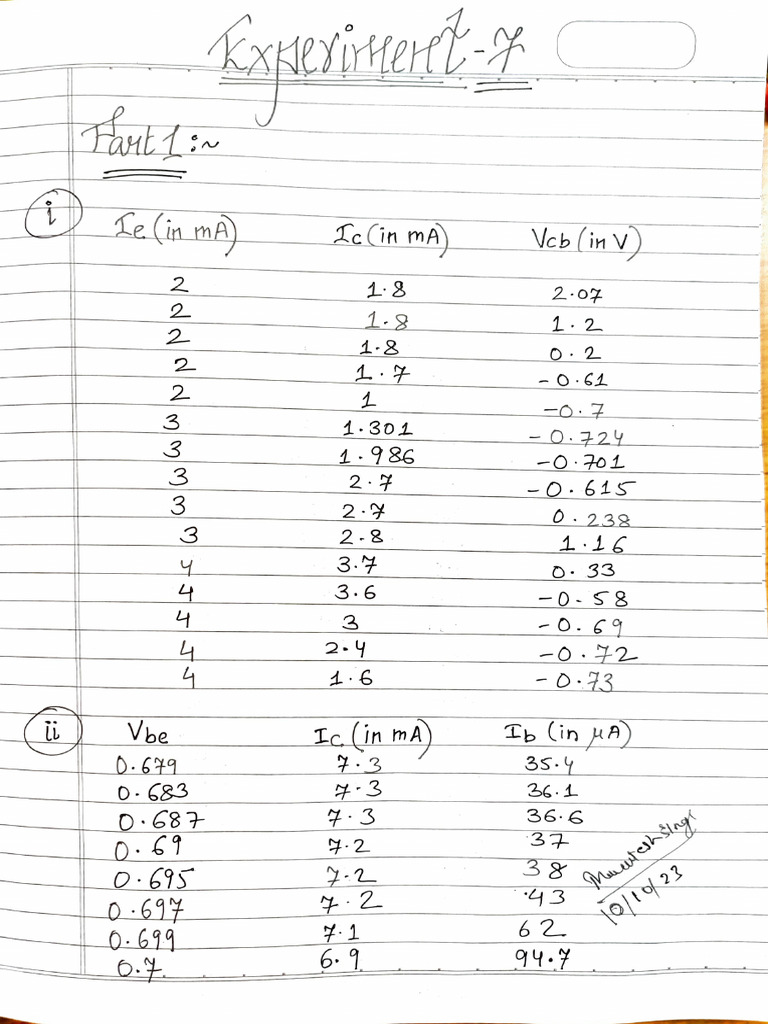 Experiment-7
Part 1:~
i
Ie (in mA) Ic (in mA) Vcb (in V)
2 1.8 2.07
2 1.8 1.2
2 1.8 0.2
2 1.7 -0.61
2 1 -0.7
3 1.301 -0.724
3 1.986 -0.701
3 2.7 -0.615
3 2.7 0.238
3 2.8 1.16
4 3.7 0.33
4 3.6 -0.58
4 3 -0.69
4 2.4 -0.72
4 1.6 -0.73
ii Vbe Ic (in mA) Ib (in μA)
0.679 7.3 35.4
0.683 7.3 36.1
0.687 7.3 36.6
0.69 7.2 37
0.695 7.2 38
0.697 7.2 43
0.699 7.1 62
0.7 6.9 94.7
10/10/23